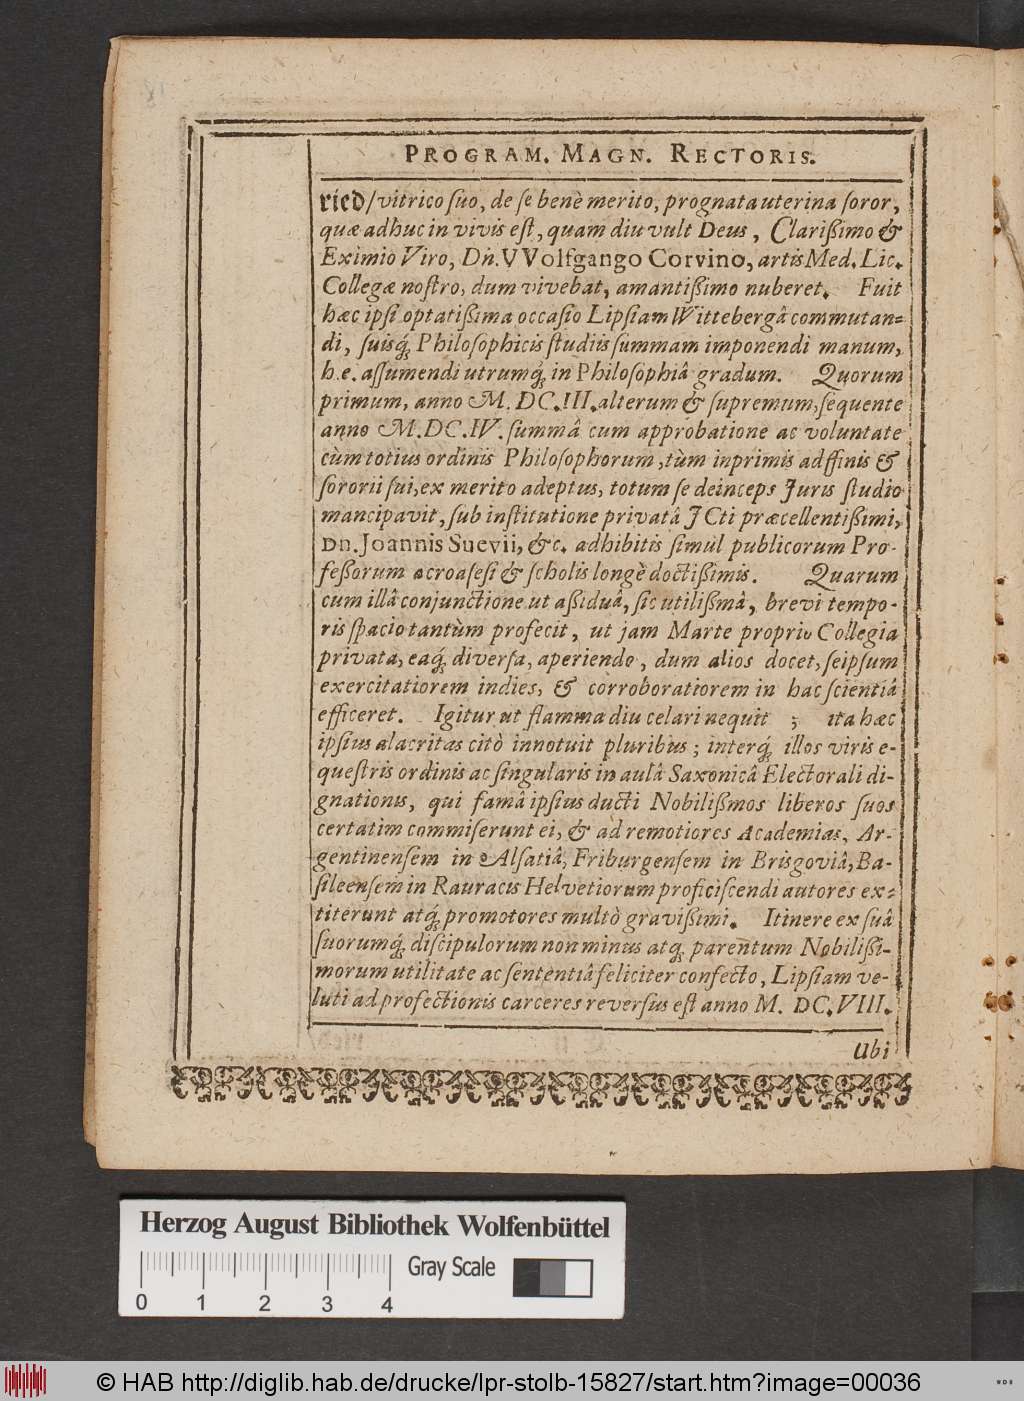 PROGRAM. MAGN. RECTORIS.
ried/vitrico ſuo, de ſe benè merito, prognata uterina ſoror,
quæ adhuc in vivis eſt, quam diu vult Deus, Clarißimo &
Eximio Viro, Dn. VVolfgango Corvino, artis Med. Lic.
Collegæ noſtro, dum vivebat, amantißimo nuberet. Fuit
hæc ipſi optatißima occaſio Lipſiam Wittebergâ commutan-
di, ſuisq́; Philoſophicis ſtudiis ſummam imponendi manum,
h.e. aſſumendi utrumq́; in Philoſophiâ gradum. Quorum
primum, anno M. DC. III. alterum & ſupremum, ſequente
anno M. DC. IV. ſummâ cum approbatione ac voluntate
cùm totius ordinis Philoſophorum, tùm inprimis adffinis &
ſororii ſui, ex merito adeptus, totum ſe deinceps Juris ſtudio
mancipavit, ſub inſtitutione privatâ JCti præcellentißimi,
Dn. Joannis Suevii, &c. adhibitis ſimul publicorum Pro-
feßorum acroaſeſi & ſcholis longè doctißimis. Quarum
cum illâ conjunctione ut aßiduâ, ſic utilißmâ, brevi tempo-
ris ſpacio tantùm profecit, ut jam Marte proprio Collegia
privata, eaq́; diverſa, aperiendo, dum alios docet, ſeipſum
exercitatiorem indies, & corroboratiorem in hac ſcientiâ
efficeret. Igitur ut flamma diu celari nequit ; ita hæc
ipſius alacritas citò innotuit pluribus ; interq́; illos viris e-
queſtris ordinis ac ſingularis in aulâ Saxonicâ Electorali di-
gnationis, qui famâ ipſius ducti Nobilißmos liberos ſuos
certatim commiſerunt ei, & ad remotiores Academias, Ar-
gentinenſem in Alſatiâ, Friburgenſem in Brisgoviâ, Ba-
ſileenſem in Rauracis Helvetiorum proficiſcendi autores ex-
titerunt atq́; promotores multò gravißimi. Itinere ex ſuâ
ſuorumq́; diſcipulorum non minus atq; parentum Nobilißi-
morum utilitate ac ſententiâ feliciter confecto, Lipſiam ve-
luti ad profectionis carceres reverſus eſt anno M. DC. VIII.
Ubi
Herzog August Bibliothek Wolfenbüttel
Gray Scale
0 1 2 3 4
© HAB http://diglib.hab.de/drucke/lpr-stolb-15827/start.htm?image=00036